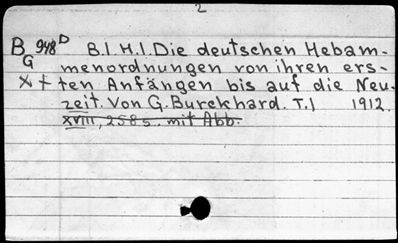 2
B 948 D B.I.H.I. Die deutschen Hebam-
G menordnungen von ihren ers-
x + ten Anfängen bis auf die Neu-
zeit. Von G. Burckhard. T.I 1912.
XVIII, 258 s. mit Abb.